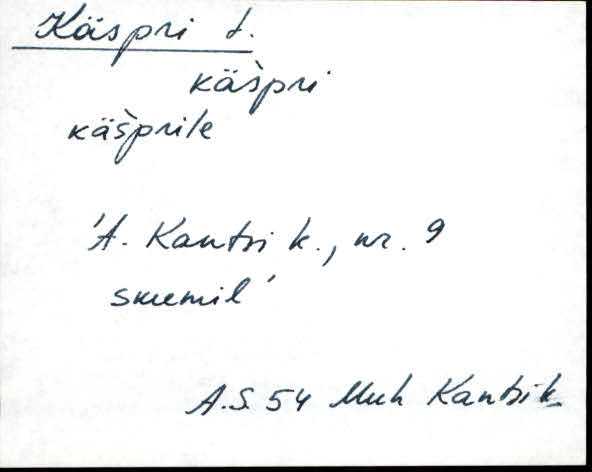 Käspri t.
käšpri
käšprile
'A. Kantsi k., nr. 9
suumil'
A.S. 54 Muh Kantsi k